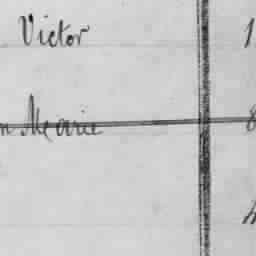 Victor 1
n Marie 8
4